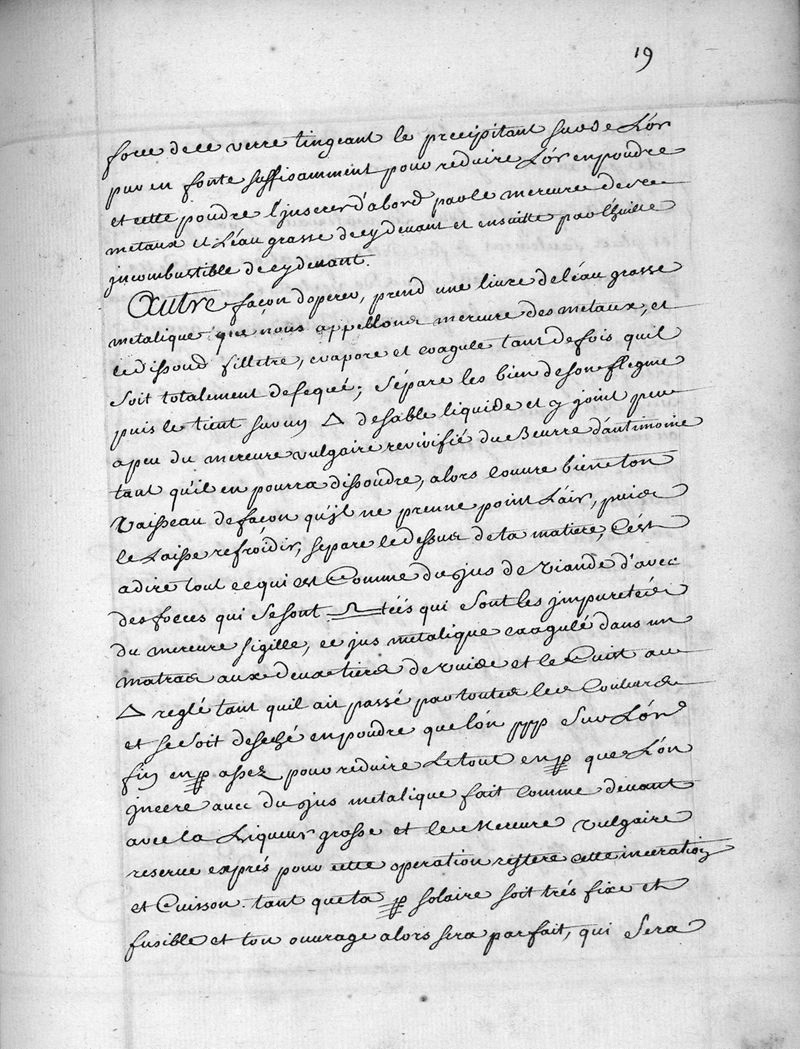 19
force de ce verre tingeant le precipitant sur de L'or
pur en fonte suffisamment pour reduire L'or en poudre
et cette poudre l'jncerer d'abord par le mercure de ce
metaux et L'eau grasse de cy devant et ensuitte par l'huille
jncombustible de cy devant.
Autre façon d'operer, prend une livre de l'eau grasse
metalique que nous appellons mercure des metaux, et
le dissoud, filltre, evapore et coagule tant de fois quil
soit totalement defequé; sépare les bien de son flegme
puis le tient sur un △ de sable liquide et y joint peu
a peu du mercure vulgaire revivifié du Beurre d'antimoine
tant qu'il en pourra dissoudre, alors couvre bien ton
Vaisseau de façon qu'jl ne prenne point L'air, puis
le Laisse refroidir, separe le dessus de ta matiere, C'est
adire tout ce qui est Comme du jus de viande d'avec
des foeces qui se sont ♎ téés qui sont les jmpuretés
du mercure sigillé, ce jus metalique coagulé dans un
matras aux deux tiers de vuide et le Cuit au
△ reglé tant quil ait passé par toutes les Couleurs
et se soit desechè en poudre que l'on ppp sur L'or
fin en ꝓ assez pour reduire Le tout en ꝓ que L'on
jncere avec du jus metalique fait comme devant
avec la Liqueur grasse et le Mercure vulgaire
reserve exprés pour cette operation reïtere cette inceration
et Cuisson tant que ta ꝓ solaire soit trés fixe et
fusible et ton ouvrage alors sera parfait, qui sera